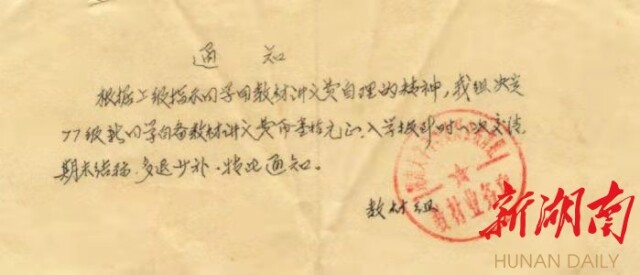 通知
根据上级指示同学用教材讲义费自理的精神，我组决定
77级新同学自备教材讲义费币壹拾元正，入学报到时一次交清，
期末结稿，多退少补。特此通知。
教材组
教材业务章
新湖南
HUNAN DAILY